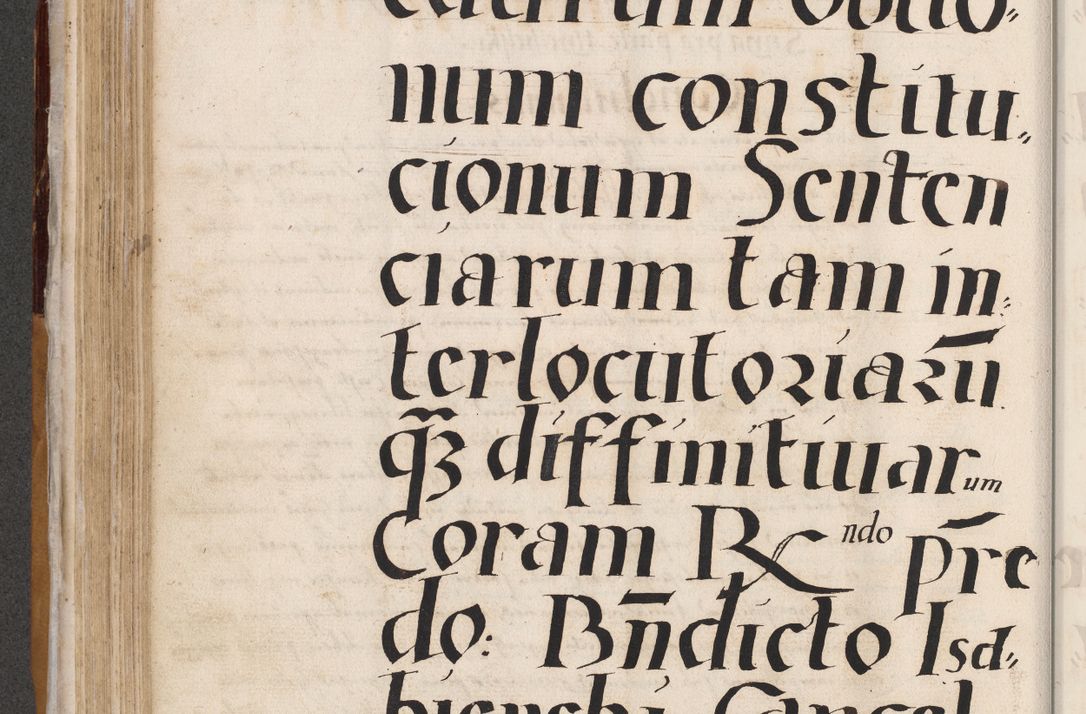 num constitu„
cionum Senten
ciarum tam in:
terlocutoriarū
q̃ꝫ diffinitiuarum
Coram R ndo p̄re
do: Bn̄dicto Isd„
bienski Cancel